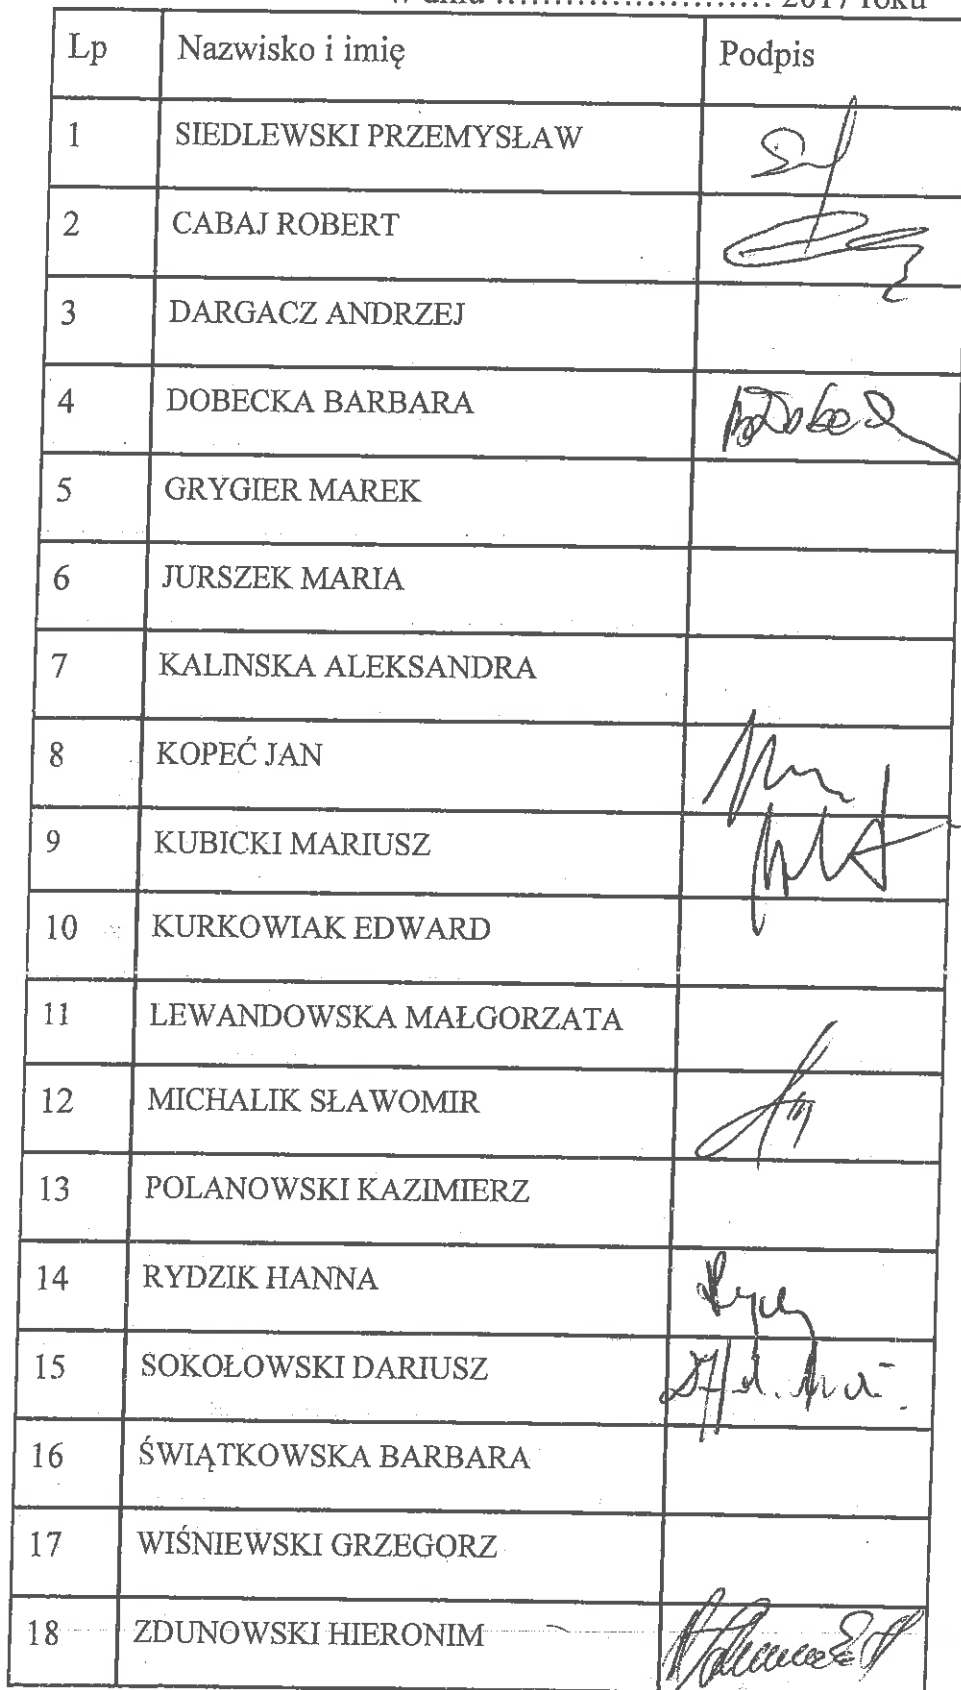 w dniu ........................ 2017 roku
Lp Nazwisko i imię Podpis
1 SIEDLEWSKI PRZEMYSŁAW
2 CABAJ ROBERT
3 DARGACZ ANDRZEJ
4 DOBECKA BARBARA
5 GRYGIER MAREK
6 JURSZEK MARIA
7 KALINSKA ALEKSANDRA
8 KOPEĆ JAN
9 KUBICKI MARIUSZ
10 KURKOWIAK EDWARD
11 LEWANDOWSKA MAŁGORZATA
12 MICHALIK SŁAWOMIR
13 POLANOWSKI KAZIMIERZ
14 RYDZIK HANNA
15 SOKOŁOWSKI DARIUSZ
16 ŚWIĄTKOWSKA BARBARA
17 WIŚNIEWSKI GRZEGORZ
18 ZDUNOWSKI HIERONIM